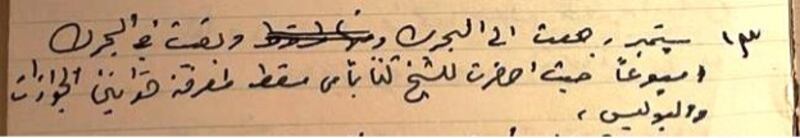 ١٣ سبتمبر، رجعت الى البحرين وبقيت في البحرين
اسبوعاً حيث احضرت للشيخ كتاباً من مسقط لمعرفة قوانين الجوازات
والبوليس،